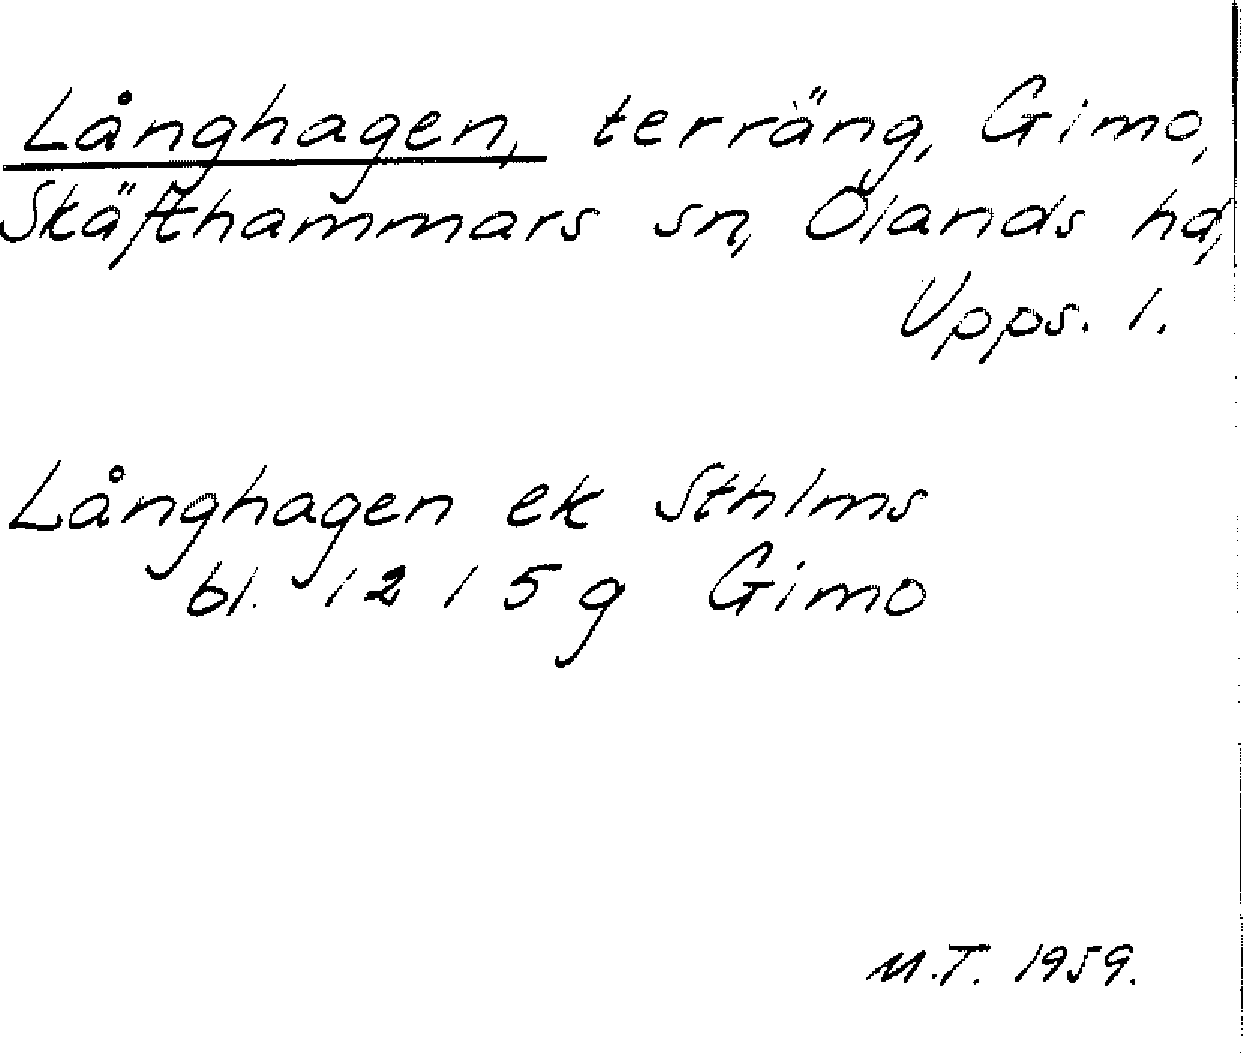 Långhagen, terräng, Gimo,
Skäfthammars sn, Ölands hd,
Upps. l.
Långhagen ek Sthlms
bl. 12 1 5 g Gimo
M.T. 1959.